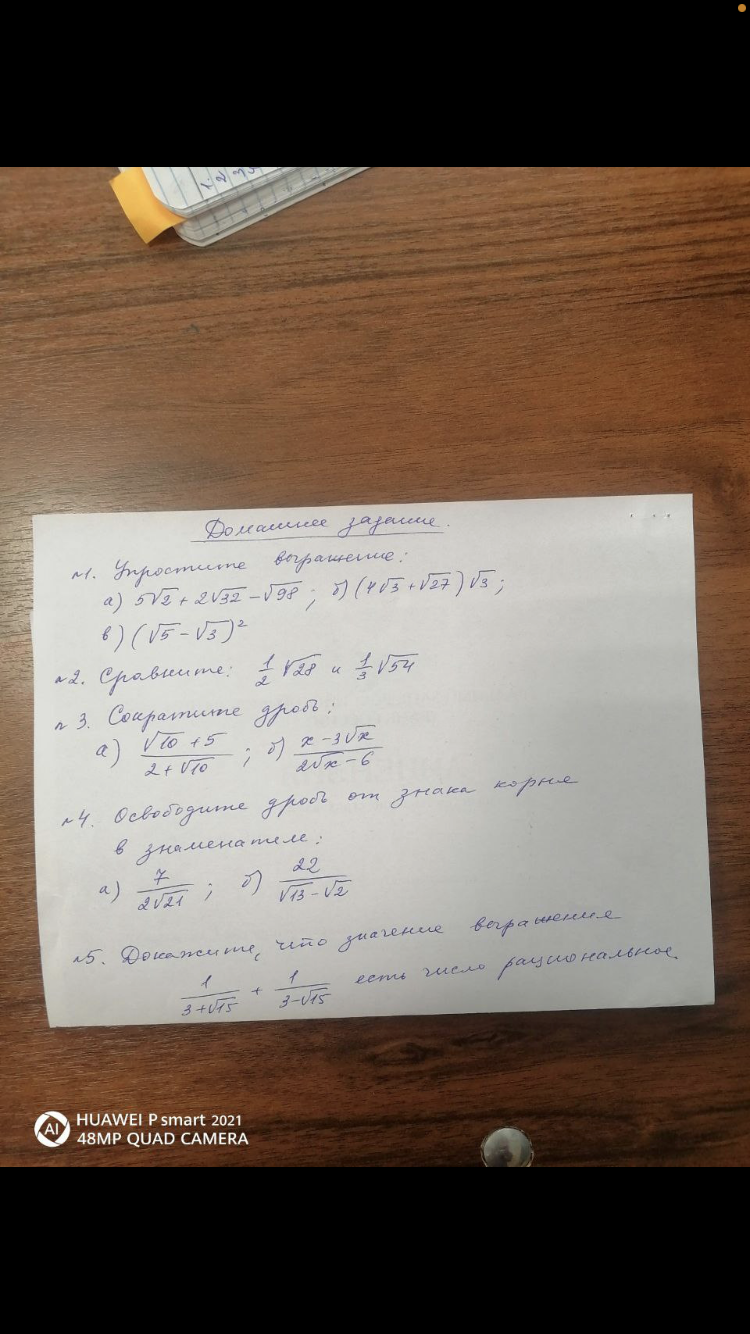 Домашнее задание.
№1. Упростите выражение:
а) 5√2 + 2√32 - √98; б) (4√3 + √27)√3;
в) (√5 - √3)²
№2. Сравните: 1/2 √28 и 1/3 √54
№3. Сократите дробь:
а) (√10 + 5)/(2 + √10); б) (x - 3√x)/(2√x - 6)
№4. Освободите дробь от знака корня
в знаменателе:
а) 7/(2√21); б) 22/(√13 - √2)
№5. Докажите, что значение выражения
1/(3+√15) + 1/(3-√15) есть число рациональное.
AI HUAWEI P smart 2021
48MP QUAD CAMERA